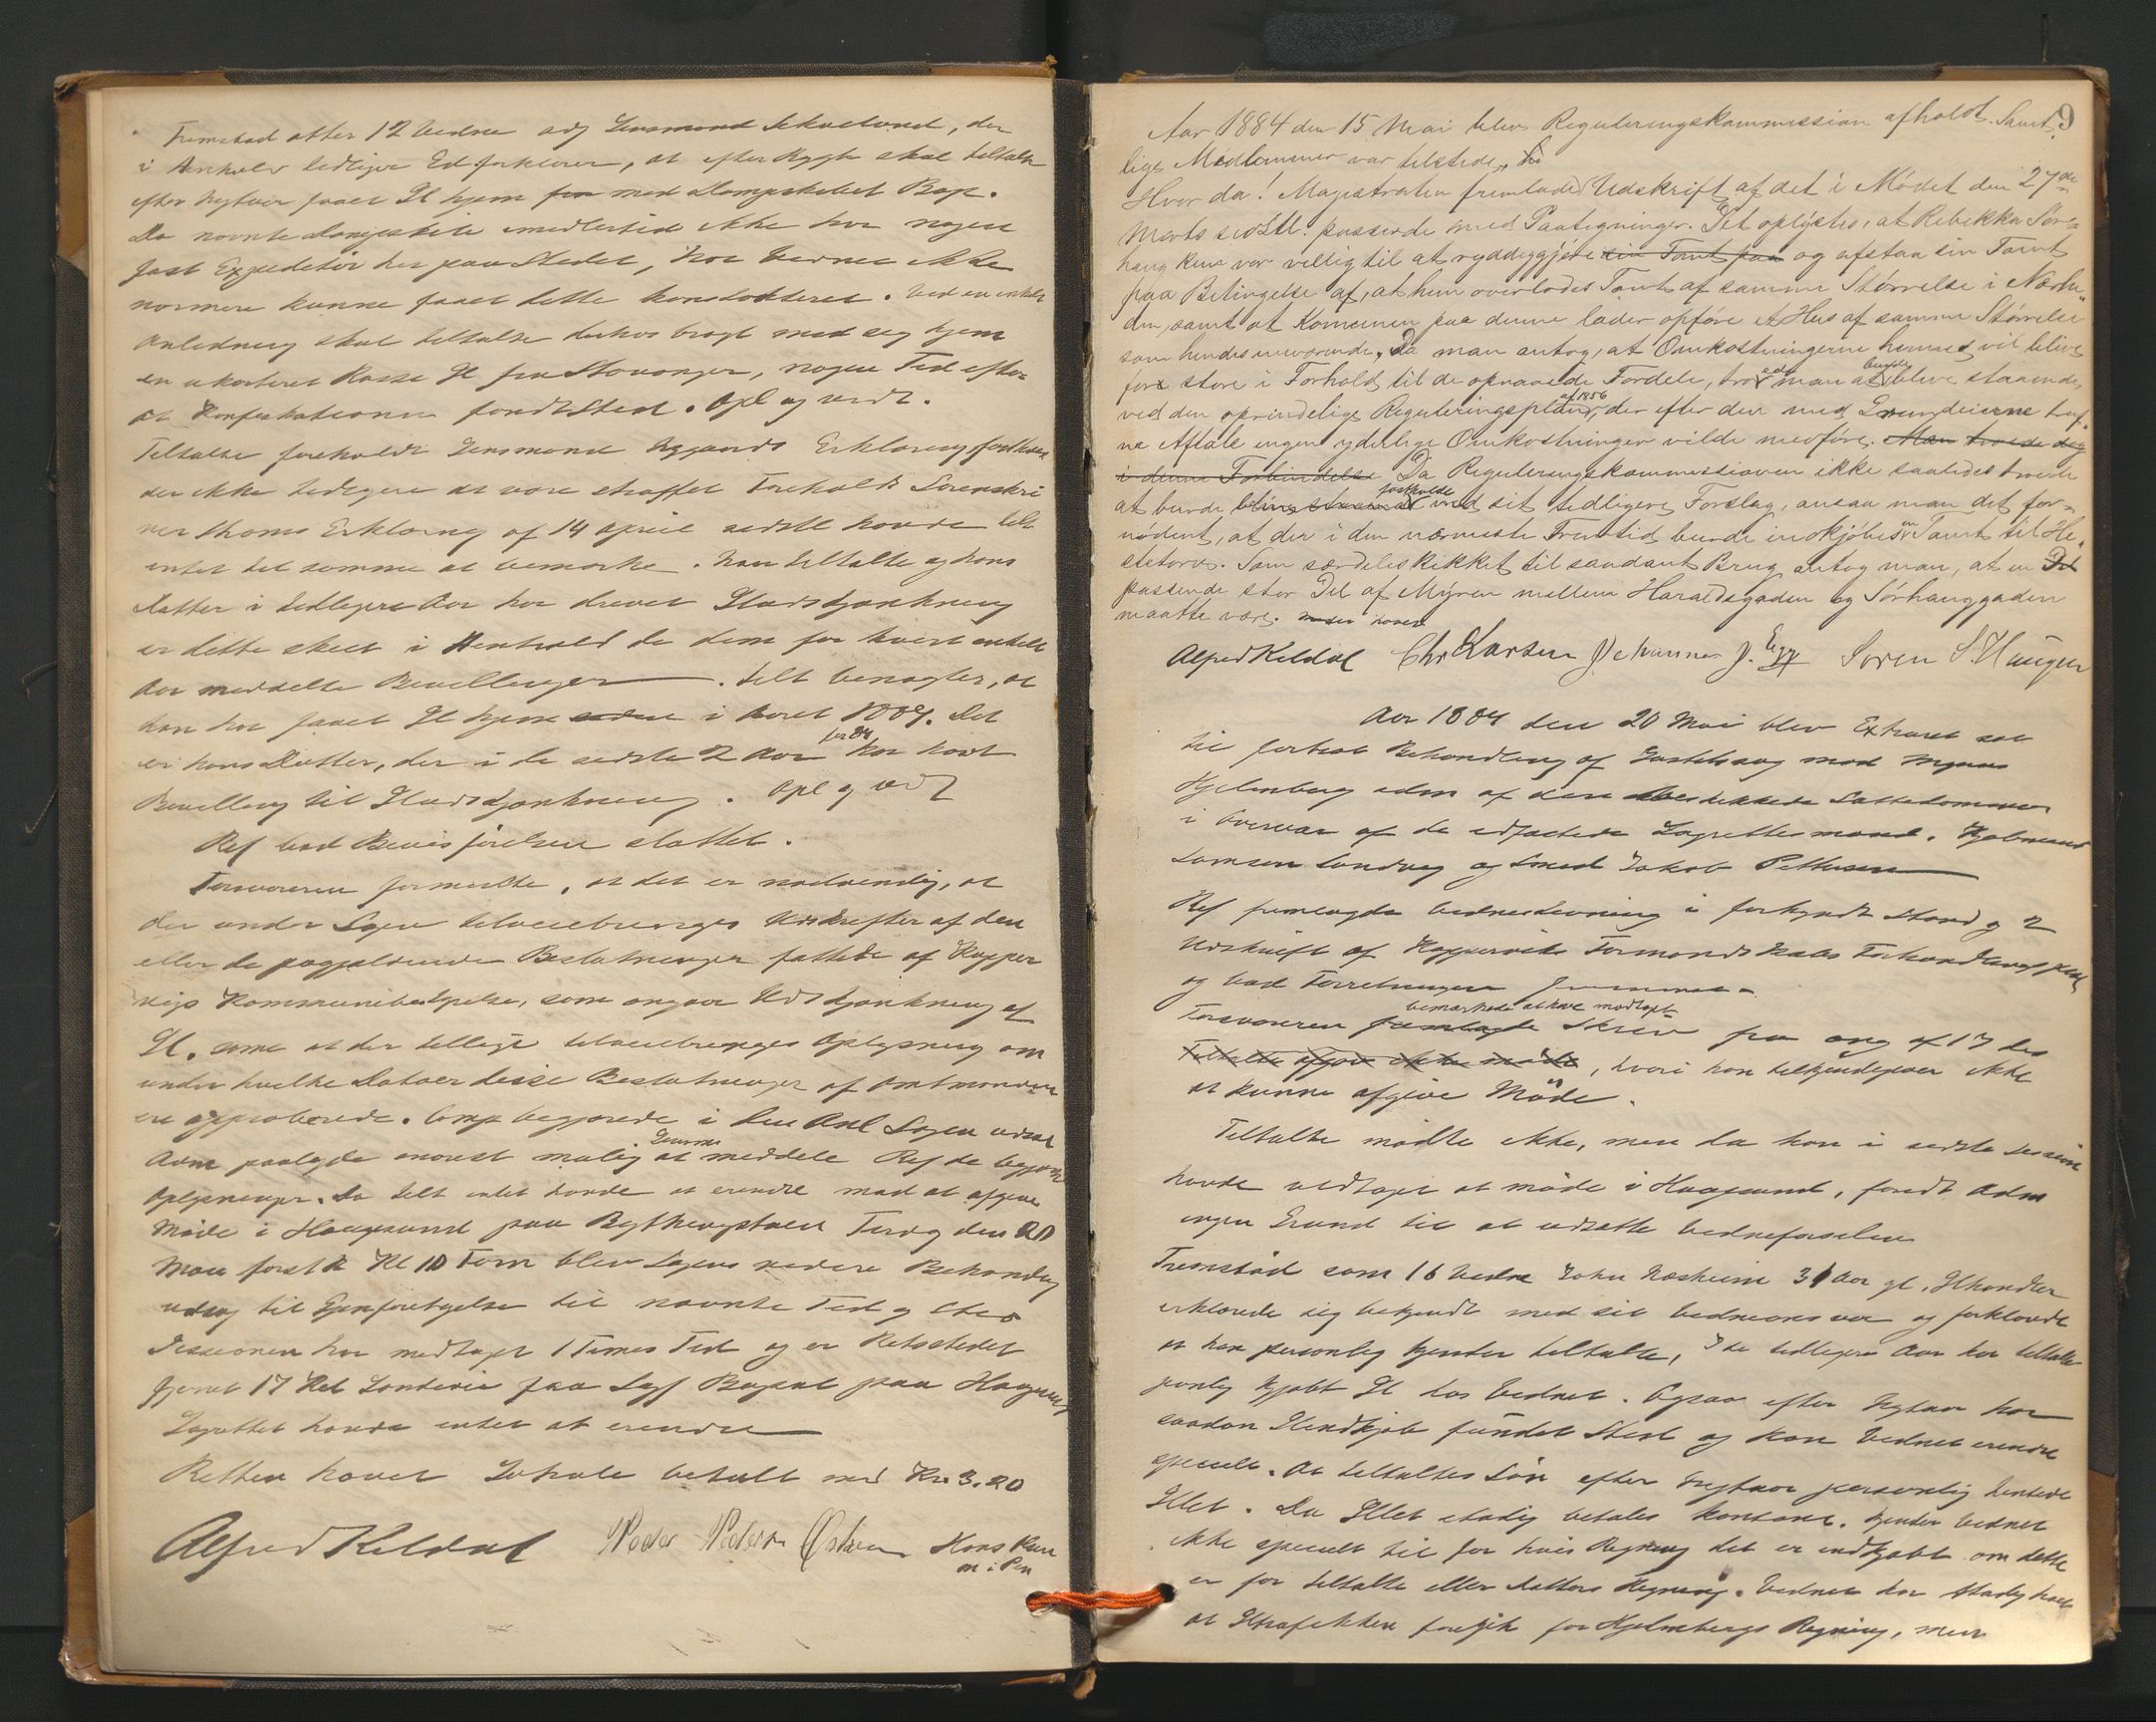 Fremstod atter 12 Vidne adj Lensmand Skaeland, der
i Henhold til tidligere Ed forklarer, at efter Rygte skal tiltalte
efter Nytaar faaet Øl hjem fra med Dampskibet Bap.
Da nævnte Dampskib imidlertid ikke har nogen
fast Expeditør her paa Stedet, har Vidnet ikke
nærmere kunne faaet dette konstateret. Ved en enkelt
Anledning skal tiltalte derhos bragt med sig hjem
en ukorteret Kasse Øl fra Stavanger, nogen Tid efter
at Konfiskationen fandt Sted. Opl og vedt.
Tiltalte foreholdt Lensmand Erklæring fastholder
der ikke tidligere at være straffet Foreholdt Sorenskri
ver Thoms Erklæring af 14 April sidstl havde tilt
intet til samme at bemærke. Naar tiltalte og hans
Datter i tidligere Aar har drevet Øludskjænkning
er dette skeet i Henhold de dem for hvert enkelt
Aar meddelte Bevillinger. Tilt benægter, at
han har faaet Øl hjem i Aaret 1884. Det
er hans Datter, der i de sidste 2 Aar før 84 har havt
Bevilling til Øludskjænkning. Opl og vedt
Ref bad Bevisførelsen sluttet.
Forsvareren formente, at det er nødvendig, at
der under Sagen tilveiebringes Udskrifter af den
eller de paagjældende Beslutninger fattede af Kopper
vigs Kommunebestyrelse, som angaar Udskjænkning af
Øl, samt at der tillige tilveiebringes Oplysning om
under hvilke Datoer disse Beslutninger af Amtmanden
ere approberede. Comp begjærede i den Anl Sagen udsat
Adm paalagde snarest mulig at meddele Ref de begjærte
Oplysninger. Da tilt intet havde at erindre mod at afgive
Møde i Haugesund paa Bythingstuen Tirsdag den 20
Mai førstk Kl 10 Form blev Sagens videre Behandling
udsat til Gjenforetagelse til nævnte Tid og Sted
Sessionen har medtaget 1 Times Tid og er Retsstedet
fjernet 17 Kil Landevei fra Sagf Bopæl paa Haugesund
Lagrettet havde intet at erindre
Retten hævet Lokale betalt med Kr. 3.20
Alfred Keldal Peder Pedersen Hans
m i Pen
9
Aar 1884 den 15 Mai blev Reguleringskommission afholdt. Samt-
lige Medlemmer var tilstede.
Hvor da! Magistraten fremlagde Udskrift af det i Mødet den 27de
Marts sidstl. passerede med Paategninger. Det oplystes, at Rebekka Sør-
haug kun var villig til at ryddiggjøre sin Tomt paa og afstaa sin Tomt
paa Betingelse af, at hun overlodes Tomt af samme Størrelse i Nærhe-
den, samt at Komunen paa denne lader opføre et Hus af samme Størrelse
som hendes nuværende. Da man antog, at Omkostningerne herved vil blive
for store i Forhold til de opnaaede Fordele, troede man at burde blive staaende
ved den oprindelige Reguleringsplan af 1856, der efter den med Grundeierne truf-
ne Aftale ingen yderlige Omkostninger vilde medføre. Man troede dog
i denne Forbindelse Da Reguleringskommissionen ikke saaledes troede
at burde blive staaende fastholde ved sit tidligere Forslag, ansaa man det for-
nødent, at der i den nærmeste Fremtid burde indkjøbes en Tomt til He-
stetorv. Som særdeles skikket til saadant Brug antog man, at en Del
passende stor Del af Myren mellem Haraldsgaden og Sørhauggaden
maatte være.
Alfred Keldal Chr Larsen Johannes J. Egge Søren S. Haugen
Aar 1884 den 20 Mai blev Extraret sat
til fortsat Behandling af Justitssag mod Mogens
Hjelmberg uden af den beskikkede Sættedommer
i Overvær af de edfæstede Lagrettesmænd. Kjøbmand
Samson Sandvig og Smed Jakob Pettersen
Ref fremlagde Vidnestevning i forkyndt Stand og 2
Udskrift af Koppervik Formandskabs Forhandlingsprot
og bad Forretningen fremmet.
Forsvareren fremlagde bemærkede at have modtaget Skriv fra ang af 17 ds
Tiltalte afgav ikke møde, hvori han tilkjendegiver ikke
at kunne afgive Møde.
Tiltalte mødte ikke, men da han i sidste Session
havde vedtaget at møde i Haugesund, fandt Adm
ingen Grund til at udsætte Vidneførselen
Fremstod som 16 Vidne John Næsheim 31 Aar gl. Ølhandler
erklærede sig bekjendt med sit Vidneansvar og forklarede
at han personlig kjender tiltalte, I de tidligere Aar har tiltalte
jevnlig kjøbt Øl hos Vidnet. Ogsaa efter Nytaar har
saadan Ølindkjøb fundet Sted og kan Vidnet erindre
specielt. At tiltaltes Søn efter Nytaar personlig hentede
Øllet. Da Øllet stadig betales kontant, kjender Vidnet
ikke specielt til for hvis Regning det er indkjøbt om dette
er for tiltalte eller Datters Regning. Vidnet har stadig havt
at Øltrafikken foregik for Hjelmbergs Regning, men